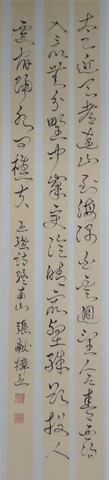 太乙近天都連山到海隅白雲迴望合青靄
入看無分野中峯變陰晴眾壑殊欲投人
處宿隔水問樵夫 王維詩終南山